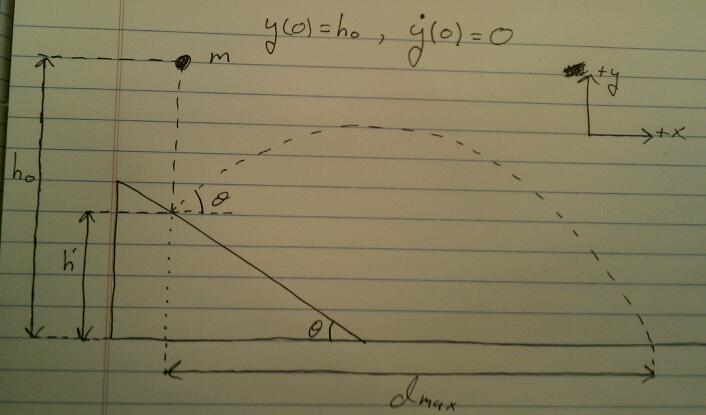 y(0)=h₀ , ẏ(0)=0
m
+y
+x
h₀
θ
h'
θ
dmax